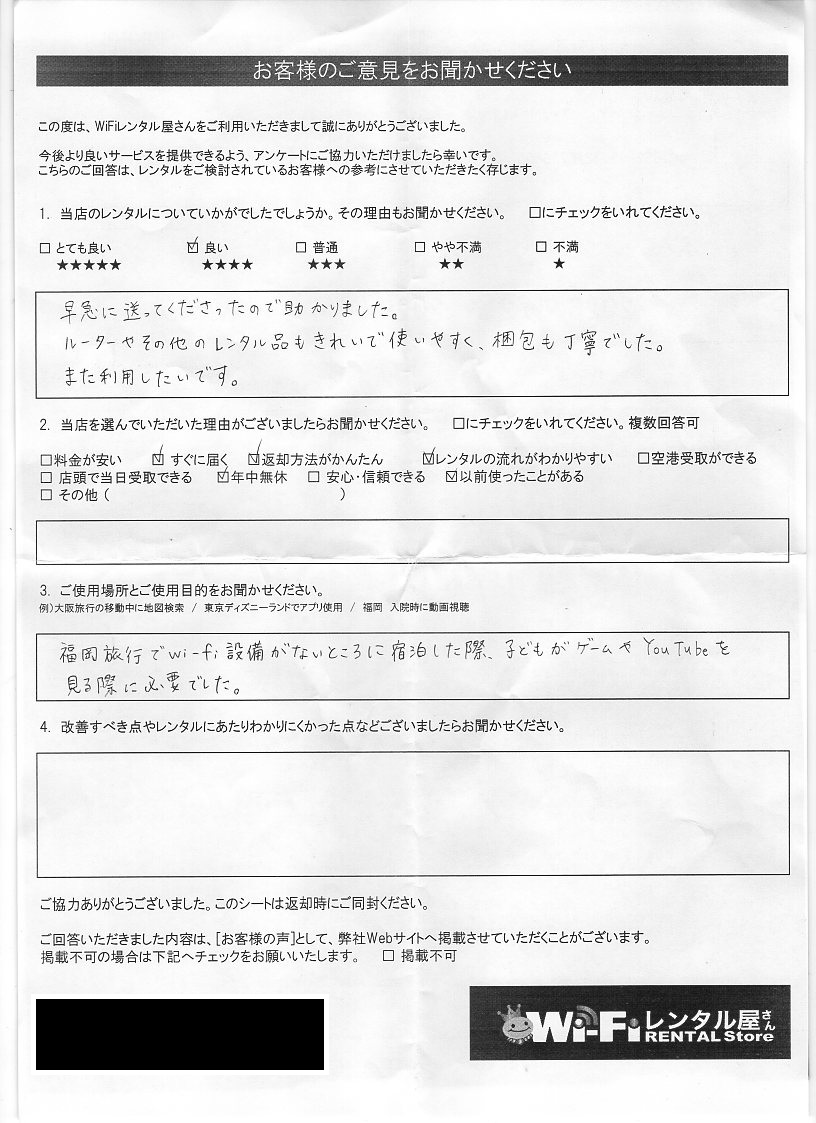 お客様のご意見をお聞かせください
この度は、WiFiレンタル屋さんをご利用いただきまして誠にありがとうございました。
今後より良いサービスを提供できるよう、アンケートにご協力いただけましたら幸いです。
こちらのご回答は、レンタルをご検討されているお客様への参考にさせていただきたく存じます。
1. 当店のレンタルについていかがでしたでしょうか。その理由もお聞かせください。 □にチェックをいれてください。
□ とても良い ☑ 良い □ 普通 □ やや不満 □ 不満
★★★★★ ★★★★ ★★★ ★★ ★
早急に送ってくださったので助かりました。
ルーターやその他のレンタル品もきれいで使いやすく、梱包も丁寧でした。
また利用したいです。
2. 当店を選んでいただいた理由がございましたらお聞かせください。 □にチェックをいれてください。複数回答可
□料金が安い ☑ すぐに届く ☑返却方法がかんたん ☑レンタルの流れがわかりやすい □空港受取ができる
□ 店頭で当日受取できる ☑年中無休 □ 安心・信頼できる ☑以前使ったことがある
□ その他 ( )
3. ご使用場所とご使用目的をお聞かせください。
例)大阪旅行の移動中に地図検索 / 東京ディズニーランドでアプリ使用 / 福岡 入院時に動画視聴
福岡旅行でwi-fi設備がないところに宿泊した際、子どもがゲームやYouTubeを
見る際に必要でした。
4. 改善すべき点やレンタルにあたりわかりにくかった点などございましたらお聞かせください。
ご協力ありがとうございました。このシートは返却時にご同封ください。
ご回答いただきました内容は、[お客様の声]として、弊社Webサイトへ掲載させていただくことがございます。
掲載不可の場合は下記へチェックをお願いいたします。 □ 掲載不可
Wi-Fi レンタル屋さん
RENTAL Store